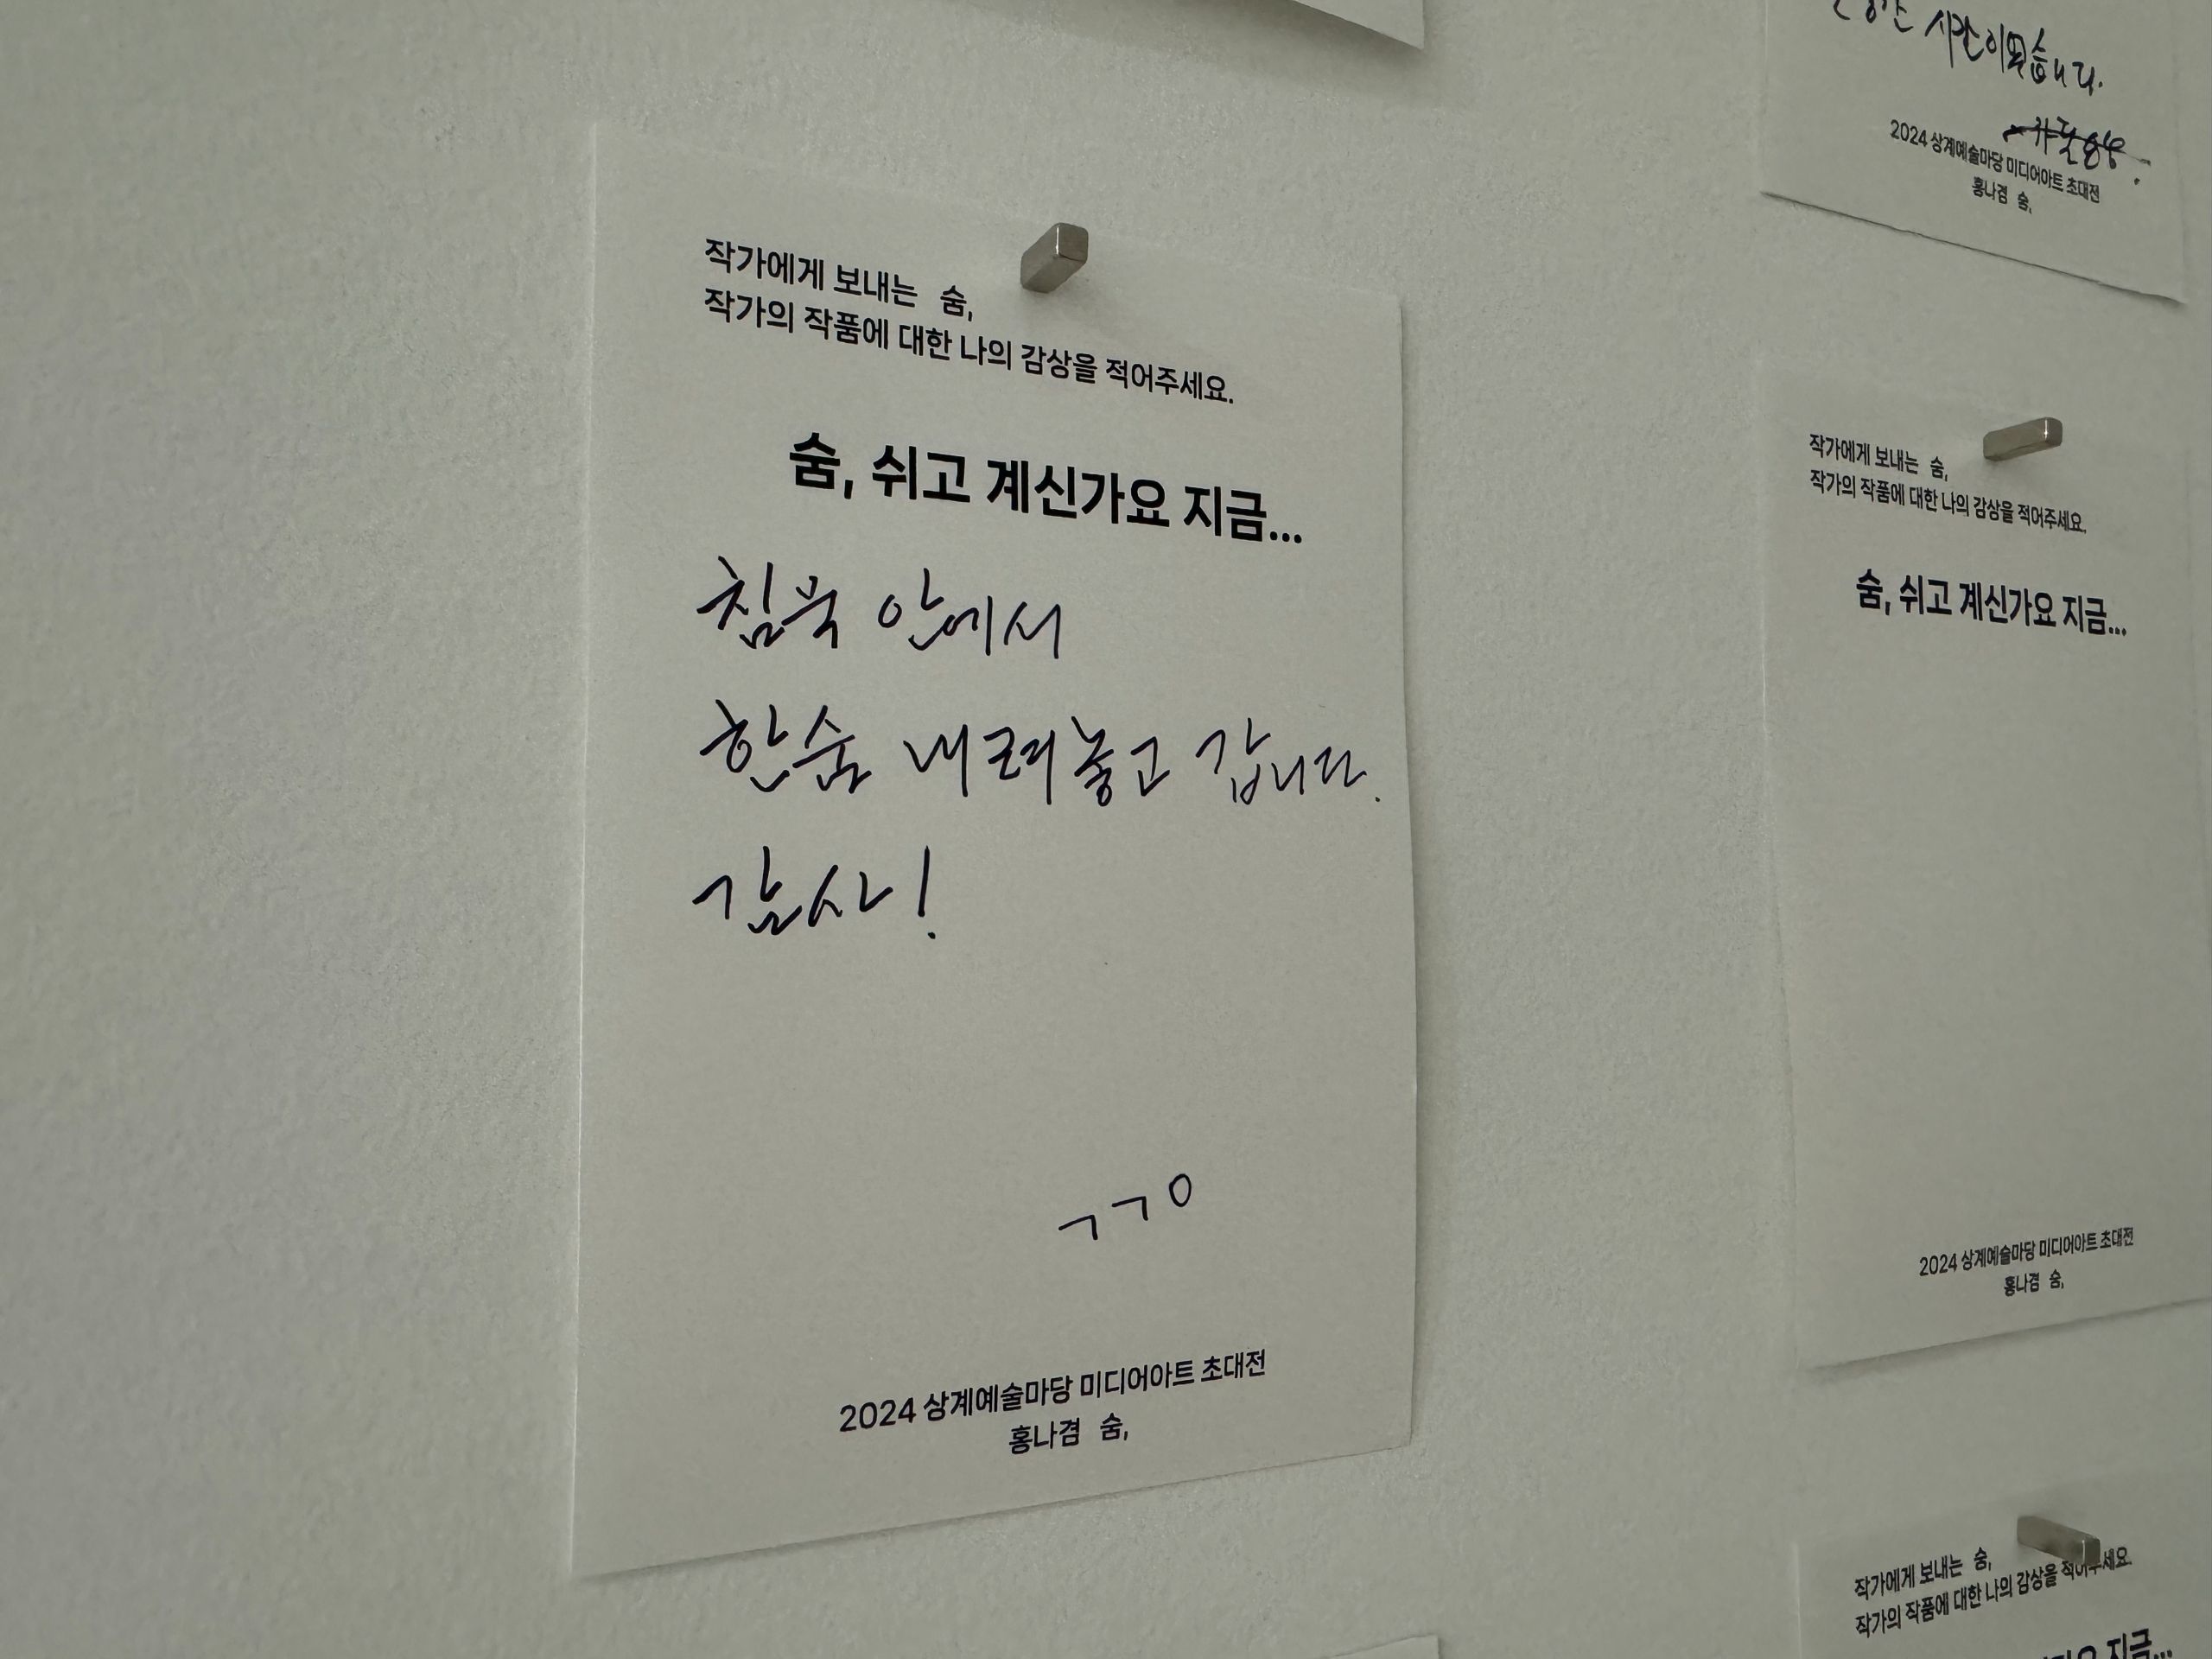 작가에게 보내는 숨,
작가의 작품에 대한 나의 감상을 적어주세요.
숨, 쉬고 계신가요 지금...
침묵 안에서
한숨 내려놓고 갑니다.
감사!
ㄱㄱㅇ
2024 상계예술마당 미디어아트 초대전
홍나겸 숨,
시간이었습니다.
2024 상계예술마당 미디어아트 초대전
홍나겸 숨,
작가에게 보내는 숨,
작가의 작품에 대한 나의 감상을 적어주세요.
숨, 쉬고 계신가요 지금...
2024 상계예술마당 미디어아트 초대전
홍나겸 숨,
작가에게 보내는 숨,
작가의 작품에 대한 나의 감상을 적어주세요.
지금...